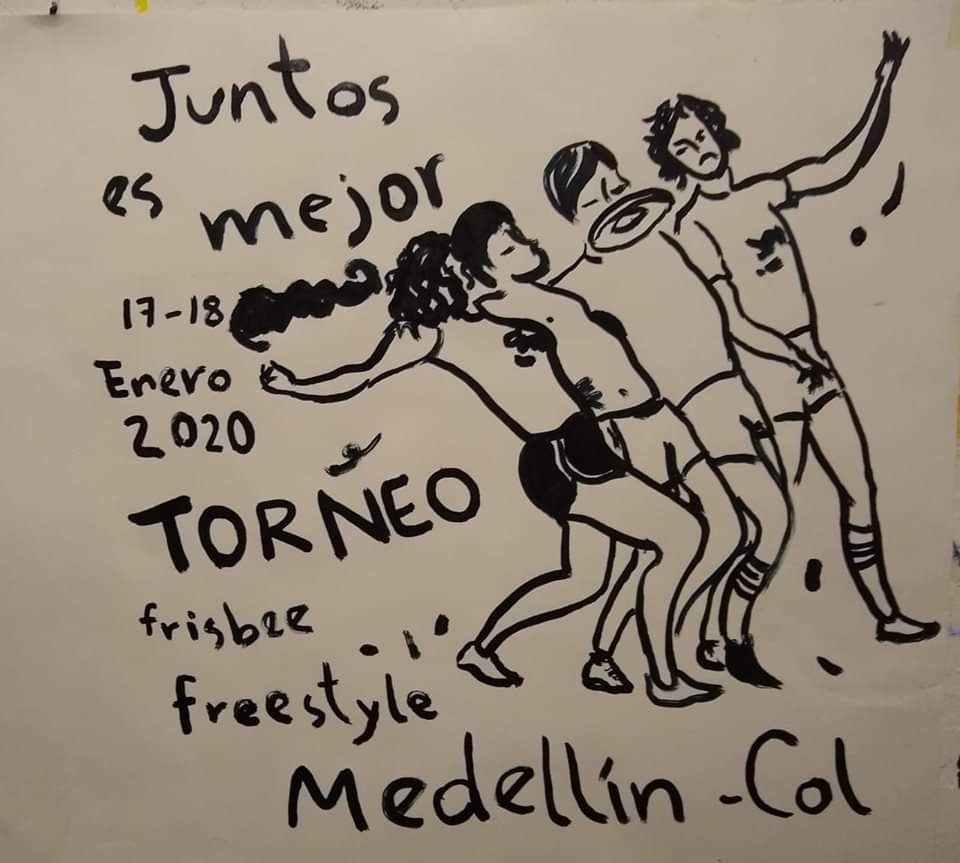 Juntos
es mejor
17-18
Enero
2020
TORNEO
frisbee
freestyle
Medellín - Col